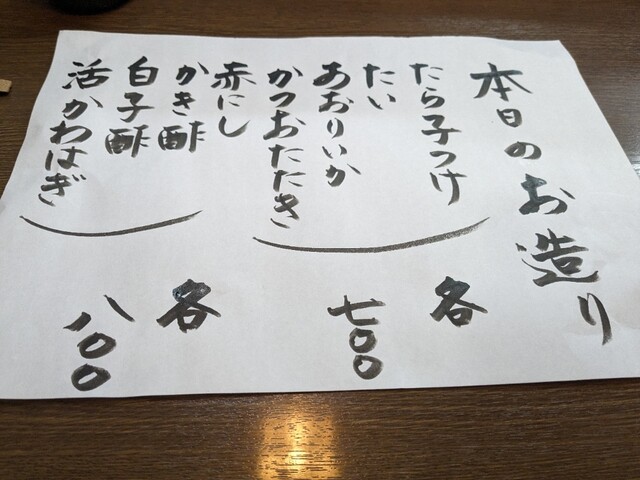 本日のお造り
たら子つけ
たい
あおりいか
かつおたたき
各
七〇〇
赤にし
かき酢
白子酢
活かわはぎ
各
八〇〇